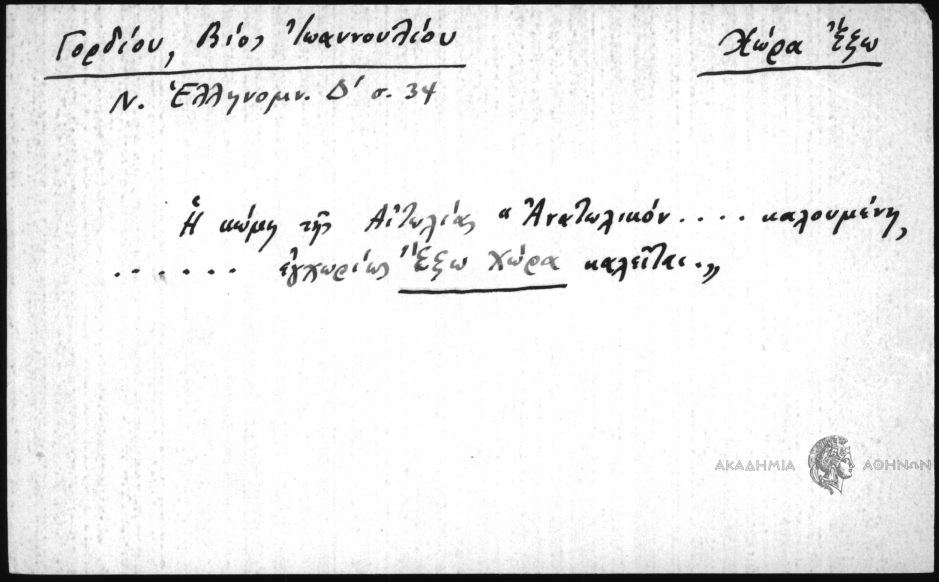 Γορδίου, Βίος Ἰωαννουλίου
Χώρα Ἔξω
Ν. Ἑλληνομν. Δ' σ. 34
Ἡ κώμη τῆς Αἰτωλίας "Ἀνατωλικόν.... καλουμένη,
...... ἐγχωρίως Ἔξω Χώρα καλεῖται.„
ΑΚΑΔΗΜΙΑ ΑΘΗΝΩΝ